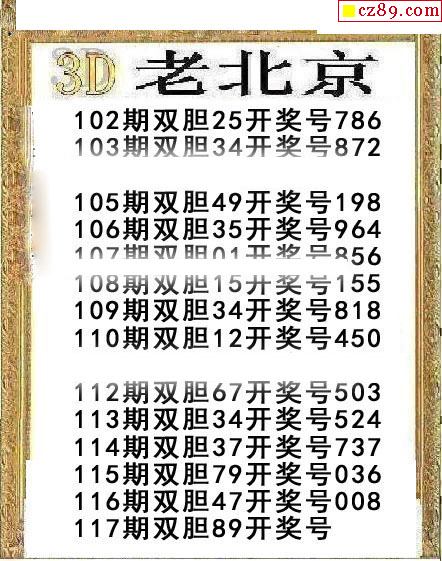 cz89.com
3D 老北京
102期双胆25开奖号786
103期双胆34开奖号872
105期双胆49开奖号198
106期双胆35开奖号964
107期双胆01开奖号856
108期双胆15开奖号155
109期双胆34开奖号818
110期双胆12开奖号450
112期双胆67开奖号503
113期双胆34开奖号524
114期双胆37开奖号737
115期双胆79开奖号036
116期双胆47开奖号008
117期双胆89开奖号